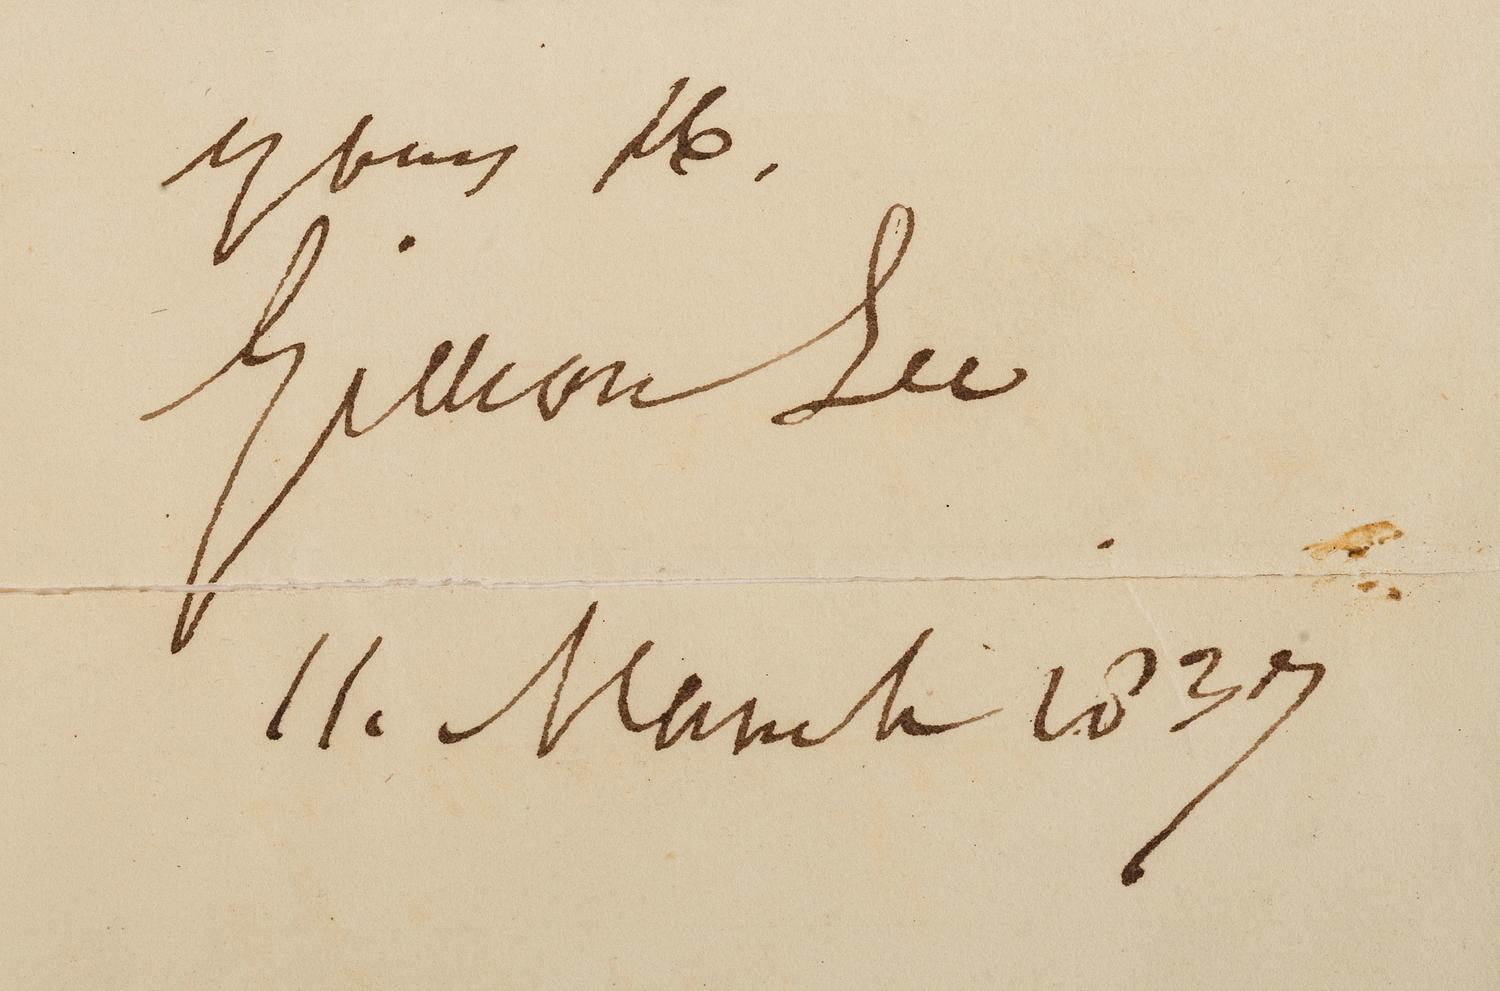 yours
Gillian Lee
11. March 1837